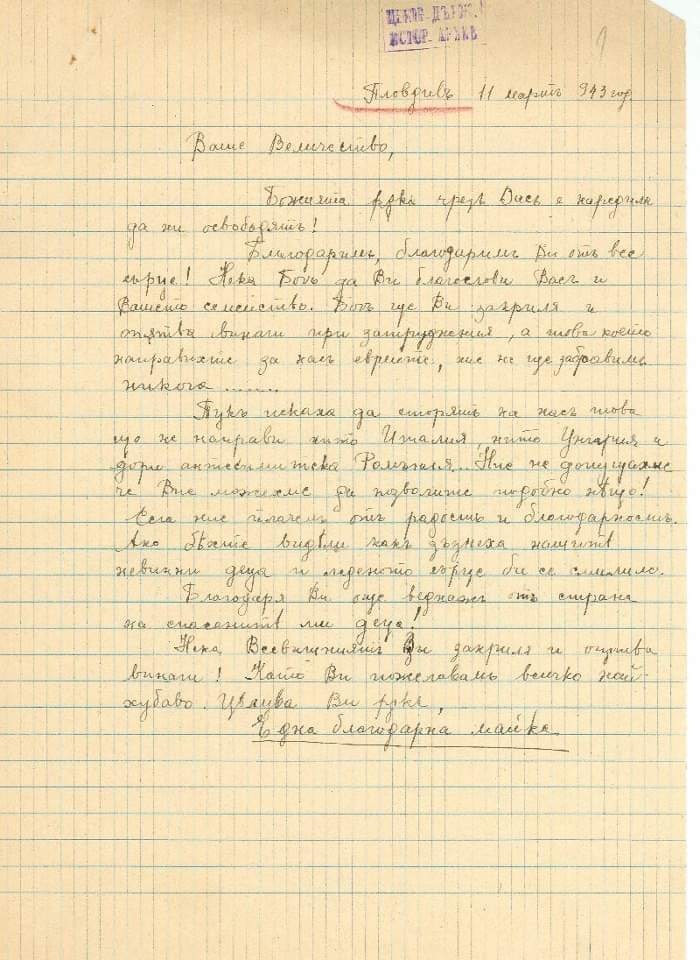 ЦЕНТР. ДЪРЖ.
ИСТОР. АРХИВ
Пловдивъ 11 мартъ 943 год.
Ваше Величество,
Божията рѫка чрезъ Васъ е наредила
да ни освободятъ!
Благодаримъ, благодаримъ Ви отъ все
сърце! Нека Богъ да Ви благослови Васъ и
Вашето семейство. Богъ ще Ви закриля и
упѫтва винаги при затруднения, а това което
направихте за насъ евреите, ние не ще забравимъ
никога ........
Тукъ искаха да сторятъ на насъ това
що не направи нито Италия, нито Унгария и
дори антисемитска Ромъния... Ние не допущахме
че Вие можехте да позволите подобно нѣщо!
Сега ние плачемъ отъ радость и благодарность.
Ако бѣхте видѣли какъ зъзнеха нашитѣ
невинни деца и леденото сърце би се смилило.
Благодаря Ви още веднажъ отъ страна
на спасенитѣ ми деца!
Нека Всевишниятъ Ви закриля и упѫтва
винаги! Като Ви пожелавамъ всичко най-
хубаво. Цѣлува Ви рѫка,
Една благодарна майка